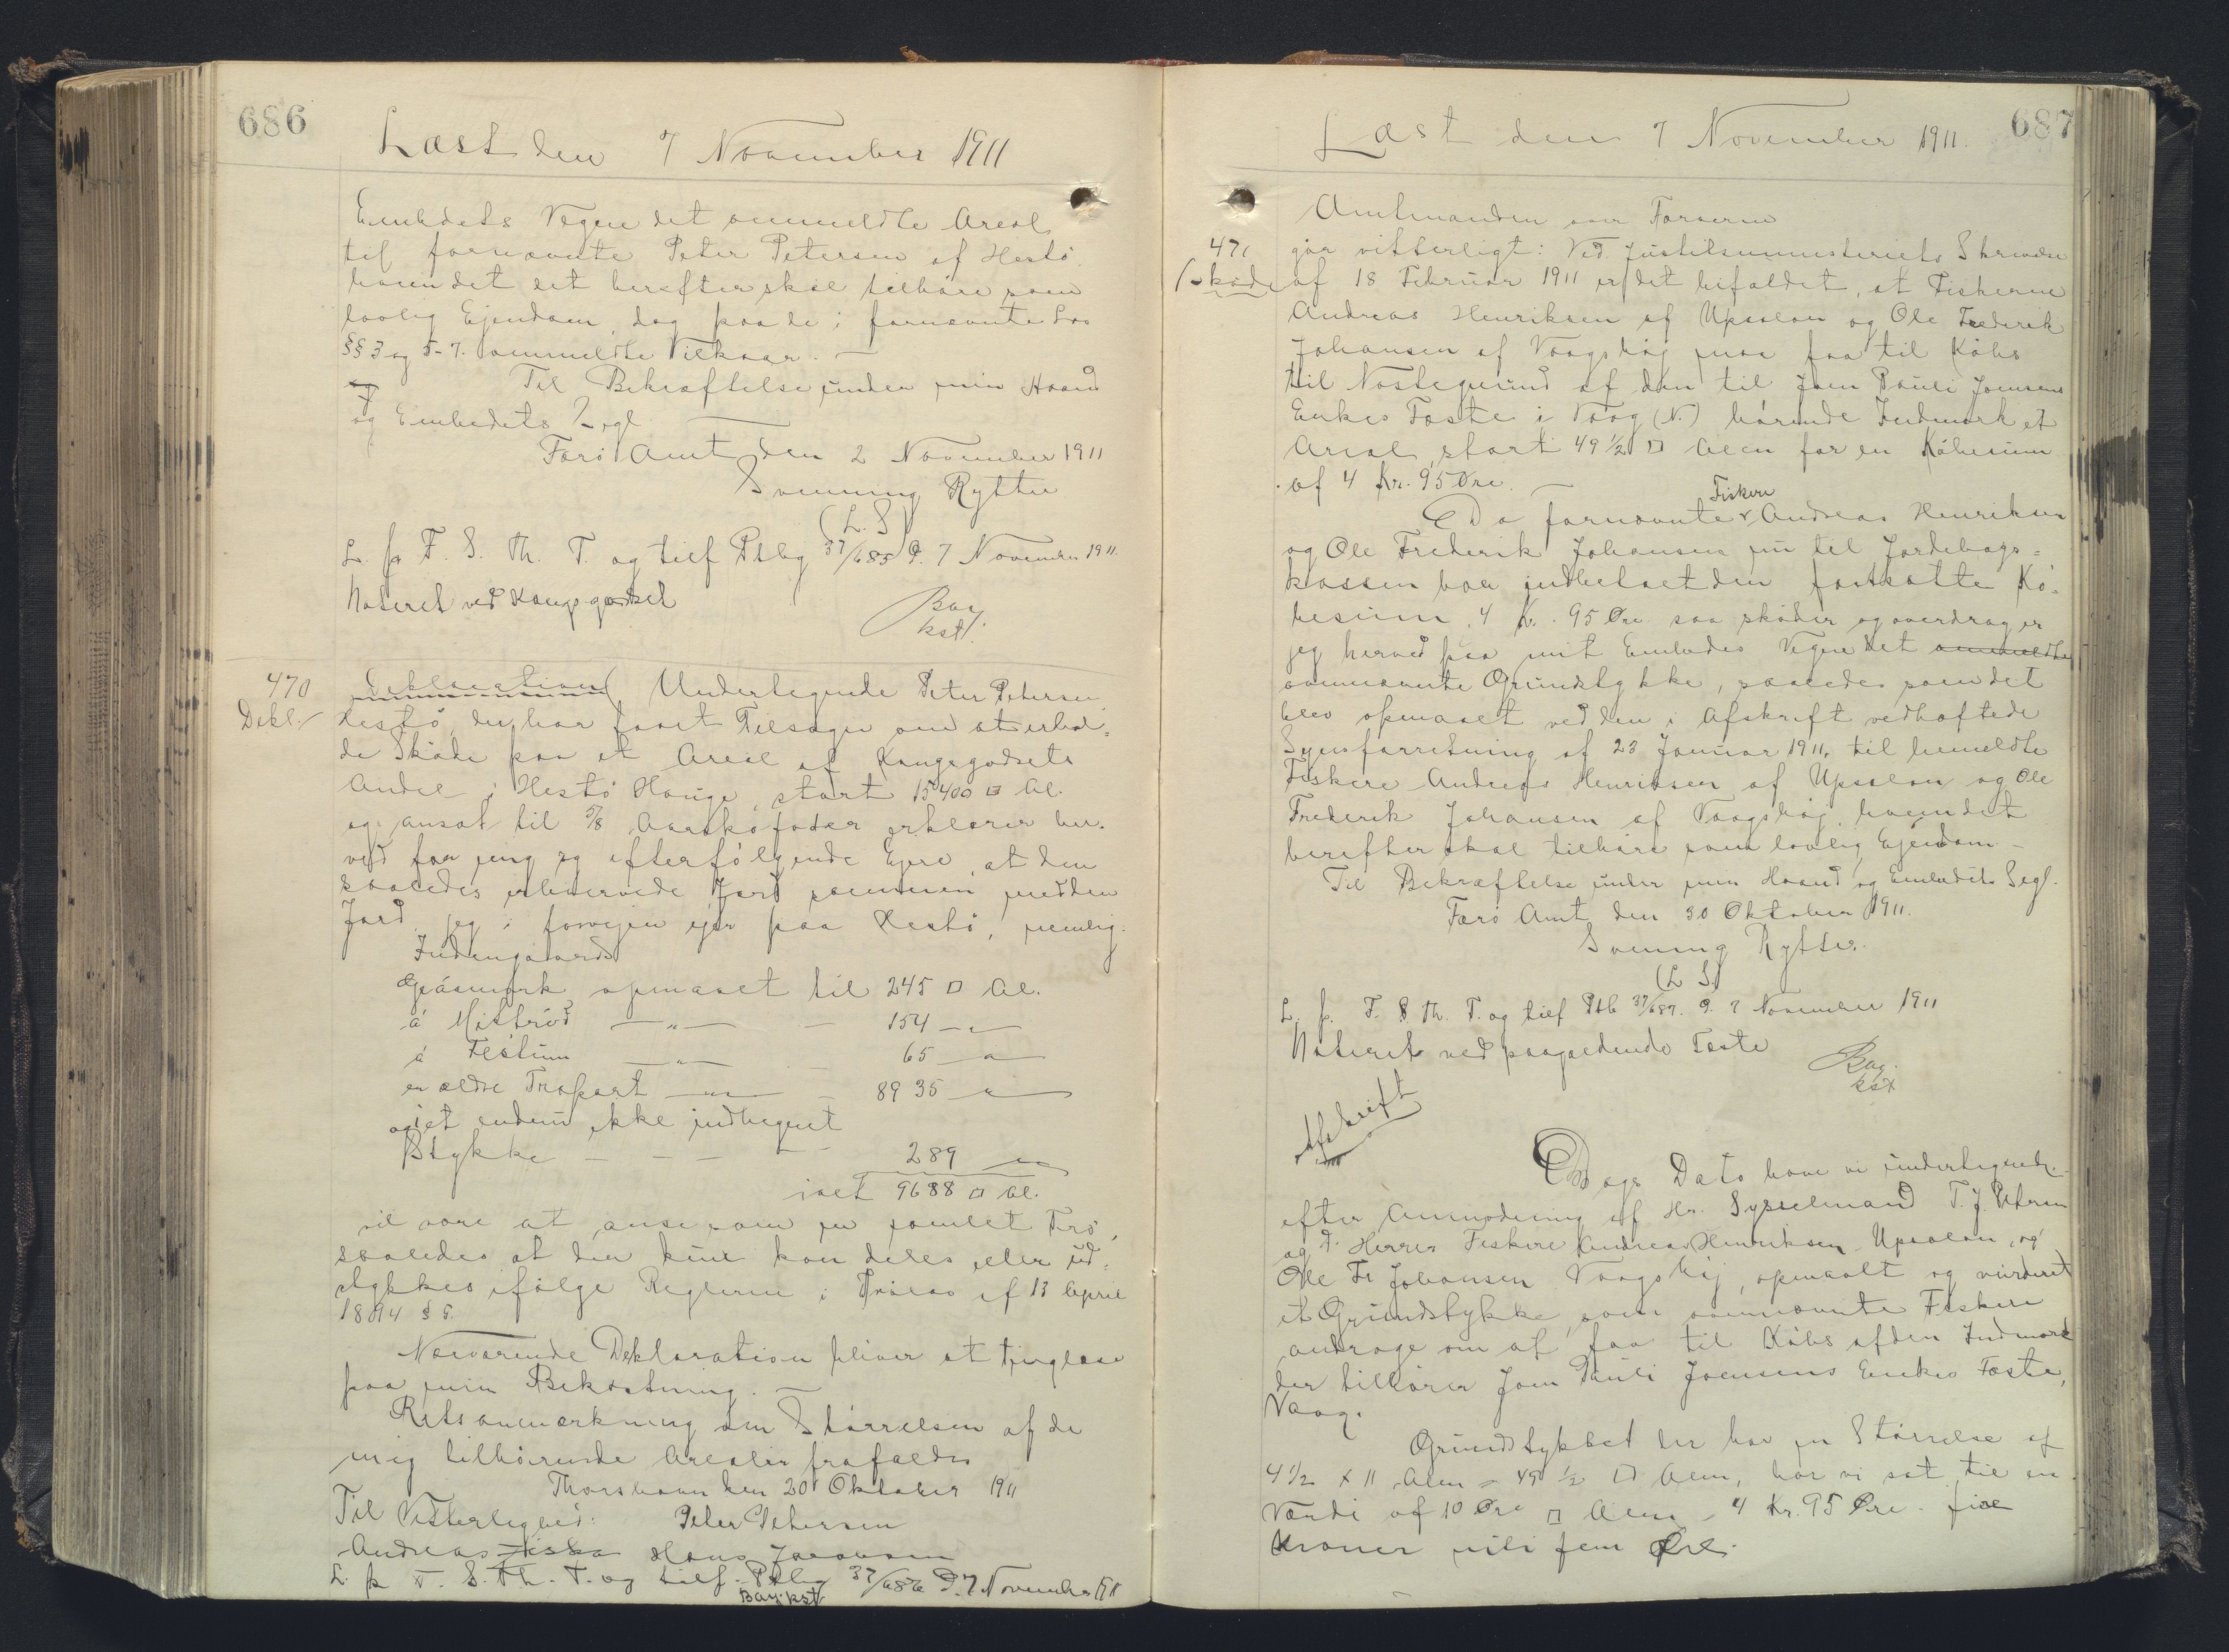 686
Læst den 7 November 1911
Embedets Vegne det ommeldte Areal
til fornævnte Peter Petersen af Hestö
hvem det herefter skal tilhöre som
lovlig Ejendom, dog paa de i fornævnte Lov
§§ 3 og 5-7. ommeldte Vilkaar. —
Til Bekræftelse under min Haand
og Embedets Segl
Færö Amt den 2 November 1911
Svenning Rytter
(L. S)
L. p F. S. Th. T. og tilf Ptbg 37/685 D. 7 November 1911.
Noteret ved Kongsgodset
Bay
kst.
470
Dekl.
Deklaration Undertegnede Peter Petersen
Hestö, der har faaet Tilsagn om at erhol=
de Sköde paa et Areal af Kongsgodsets
Andel i Hestö Hauge, stort 15400 □ Al.
og ansat til 5/8 Aarskofoder erklærer her-
ved for mig og efterfölgende Ejere, at den
saaledes erhvervede Jord sammen med den
Jord jeg i forvejen ejer paa Hestö, nemlig:
Indengaards
Gásmörk opmaalt til 245 □ Al.
á Miströd —"— 154 —"—
á — " — 65 — " —
en ældre Tröpart —"— 8935 — " —
og et endnu ikke indhegnet
Stykke — — — — 289 — " —
ialt 9688 □ Al.
vil være at anse som en samlet Trö,
saaledes at den kun kan deles eller ud-
stykkes ifölge Reglerne i Trölov af 13 April
1894 § 5.
Nærværende Deklaration bliver at tinglæse
paa min Bekostning. —
Retsanmærkning om Störrelsen af de
mig tilhörende Arealer frafaldes
Thorshavn den 20 Oktober 1911
Til Vitterlighed: Peter Petersen
Andreas Ziska Hans Jacobsen
L. p F. S. Th. T. og tilf. Ptbg 37/686 D. 7 November 1911
Bay. kst
687
Læst den 7 November 1911.
471
Sköde
Amtmanden over Færöerne
gör vitterligt: Ved Justitsministeriets Skrivelse
af 18 Februar 1911 er det bifaldet, at Fiskerne
Andreas Henriksen af Upsalon og Ole Frederik
Johansen af Vaagshöj maa faa til Köbs
til Nöstegrund af den til Joen Pauli Joensens
Enkes Fæste i Vaag (N.) hörende Indmark et
Areal stort 49 1/2 □ Alen for en Köbesum
af 4 Kr. 95 Øre. —
Da fornævnte Fiskere Andreas Henriksen
og Ole Frederik Johansen nu til Jordebogs=
kassen har indbetalt den fastsatte Kö-
besum, 4 Kr. 95 Øre saa sköder og overdrager
jeg herved paa mit Embedes Vegne det ommeldte
ovennævnte Grundstykke, saaledes som det
blev opmaalt ved den i Afskrift vedhæftede
Synsforretning af 23 Januar 1911, til bemeldte
Fiskere Andreas Henriksen af Upsalon og Ole
Frederik Johansen af Vaagshöj, hvem det
herefter skal tilhöre som lovlig Ejendom —
Til Bekræftelse under min Haand og Embedets Segl.
Færö Amt den 30 Oktober 1911.
Svenning Rytter.
(L S.)
L. p. F. S Th. T. og tilf Ptb 37/687. D. 7 November 1911
Noteret ved paagældende Fæste
Bay.
kst
Afskrift
Dags Dato have vi undertegnede
efter Anmodning af Hr. Sysselmand T. J. Petersen
og d. Herrer Fiskere Andreas Henriksen Upsalon, og
Ole Fr Johansen Vaagshöj, opmaalt og vurderet
et Grundstykke, som ovennævnte Fiskere
androge om at faa til Köbs af den Indmark
der tilhörer Joen Pauli Joensens Enkes Fæste,
Vaag.
Grundstykket der har en Störrelse af
4 1/2 x 11 Alen = 49 1/2 □ Alen, har vi sat til en
Værdi af 10 Øre □ Alen - 4 Kr. 95 Øre - fire
Kroner niti fem Øre.